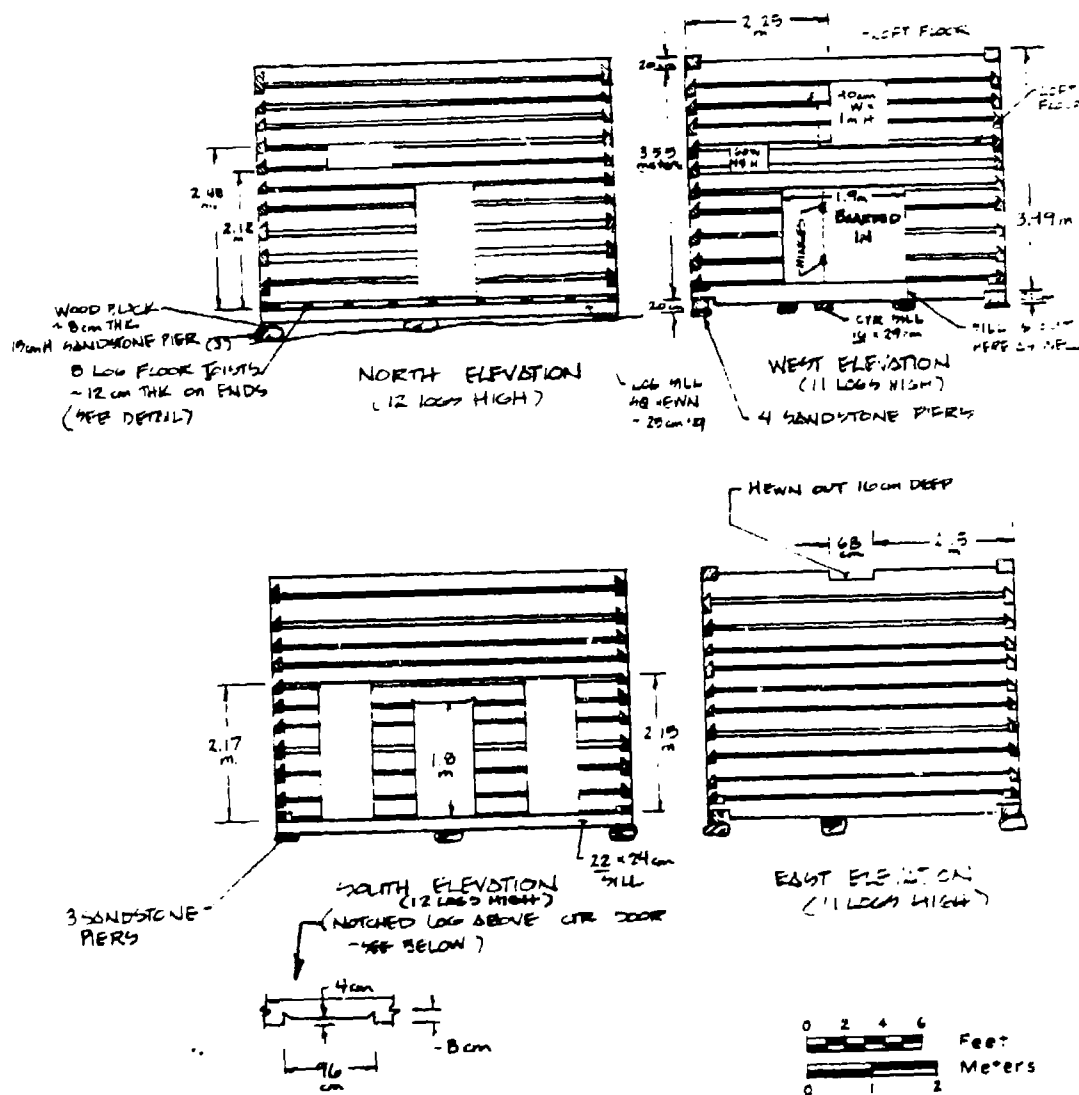 2.25
m
LOFT FLOOR
20cm
40cm
W x
1m H
LOFT
FLOOR
3.55
meters
60W
2.48
m
2.12
m
1.9m
BOARDED
IN
HINGES
3.49m
WOOD BLOCK
~ 8cm THK
15cm H SANDSTONE PIER (3)
8 LOG FLOOR JOISTS
~12 cm THK ON ENDS
(SEE DETAIL)
NORTH ELEVATION
(12 LOGS HIGH)
20cm
LOG SILL
SQ HEWN
~ 25cm SQ
CTR SILL
29cm
WEST ELEVATION
(11 LOGS HIGH)
4 SANDSTONE PIERS
HEWN OUT 16cm DEEP
68
cm
m
2.17
m.
1.8
m
2.15
m.
22 x 24cm
SILL
3 SANDSTONE
PIERS
SOUTH ELEVATION
(12 LOGS HIGH)
(NOTCHED LOG ABOVE CTR DOOR
~SEE BELOW)
EAST ELEVATION
(11 LOGS HIGH)
4cm
~8cm
96
cm
0 2 4 6
Feet
Meters
0 1 2